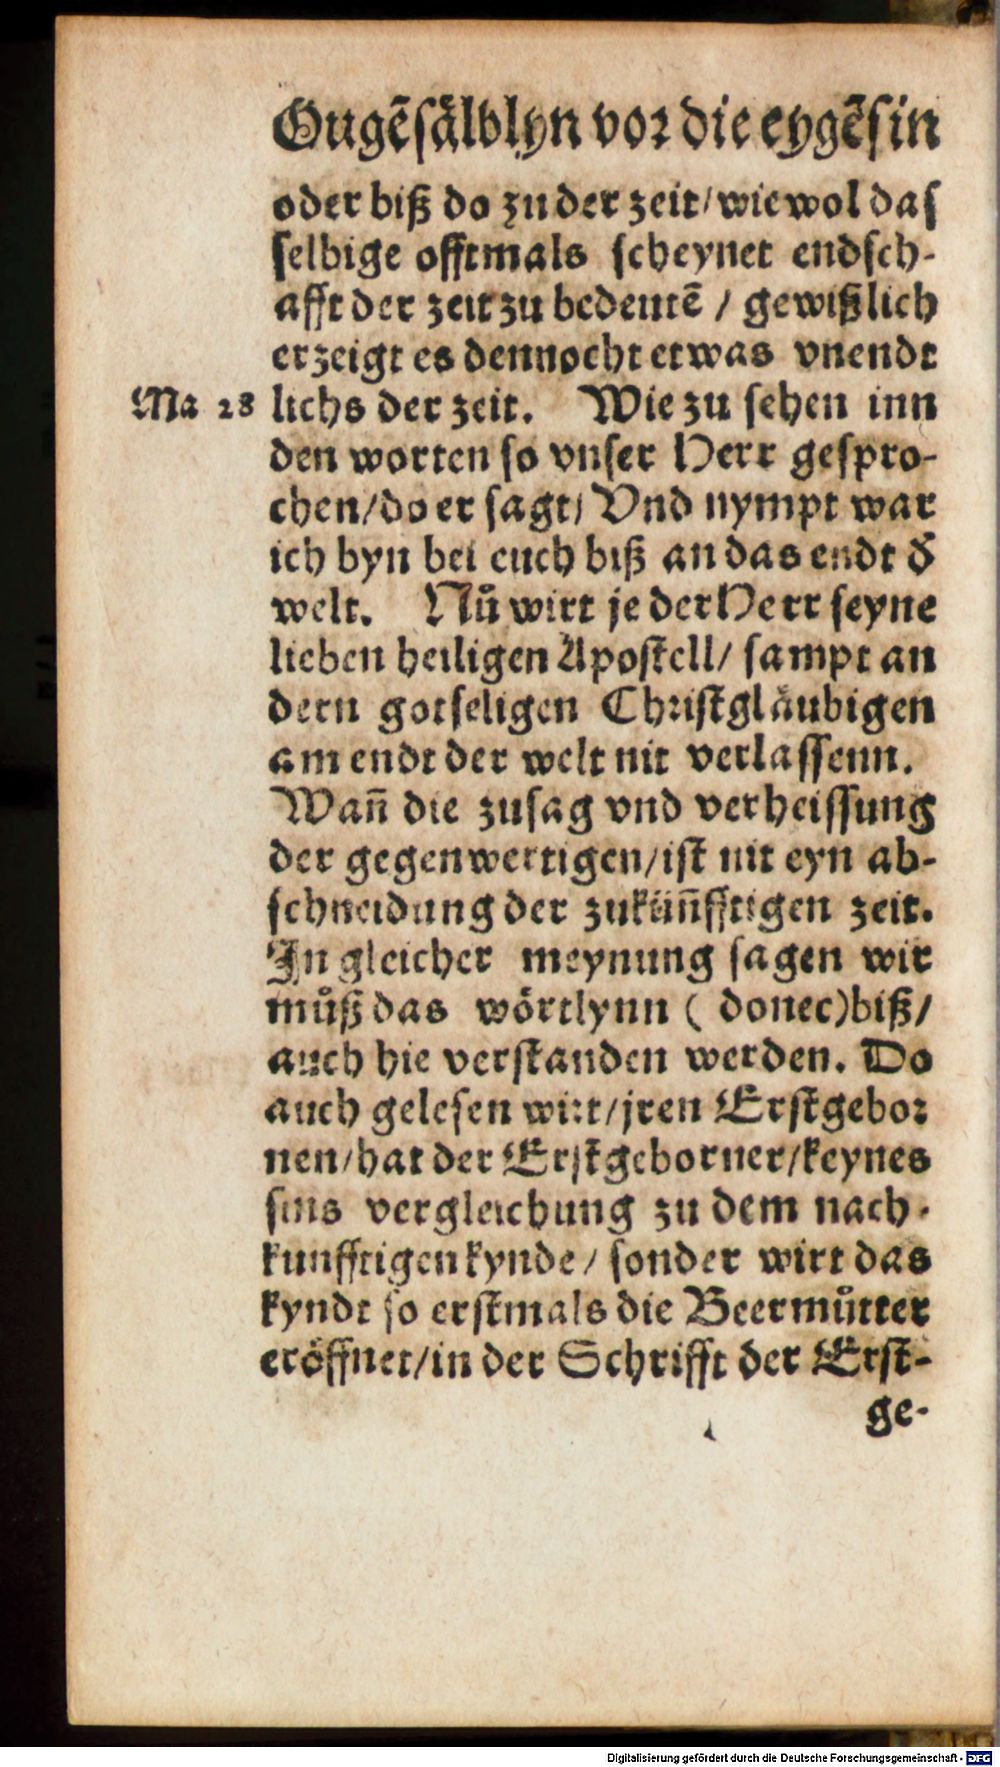 Ougẽsälblyn vor die eygẽsin
oder biß do zu der zeit/wiewol das
selbige offtmals scheynet endsch-
afft der zeit zu bedeutẽ / gewißlich
erzeigt es dennocht etwas vnendt
Ma 28 lichs der zeit. Wie zu sehen inn
den worten so vnser Herr gespro-
chen/do er sagt/ Vnd nympt war
ich byn bei euch biß an das endt d᷑
welt. Nů wirt je der Herr seyne
lieben heiligen Apostell/ sampt an
dern gotseligen Christgläubigen
am endt der welt nit verlassenn.
Wañ die zusag vnd verheissung
der gegenwertigen/ist nit eyn ab-
schneidung der zukün̄fftigen zeit.
In gleicher meynung sagen wir
můß das wörtlynn ( donec)biß/
auch hie verstanden werden. Do
auch gelesen wirt/jren Erstgebor
nen/hat der Erstgeborner/keynes
sins vergleichung zu dem nach-
kunfftigen kynde/ sonder wirt das
kyndt so erstmals die Beermůtter
eröffnet/in der Schrifft der Erst-
ge-
Digitalisierung gefördert durch die Deutsche Forschungsgemeinschaft - DFG